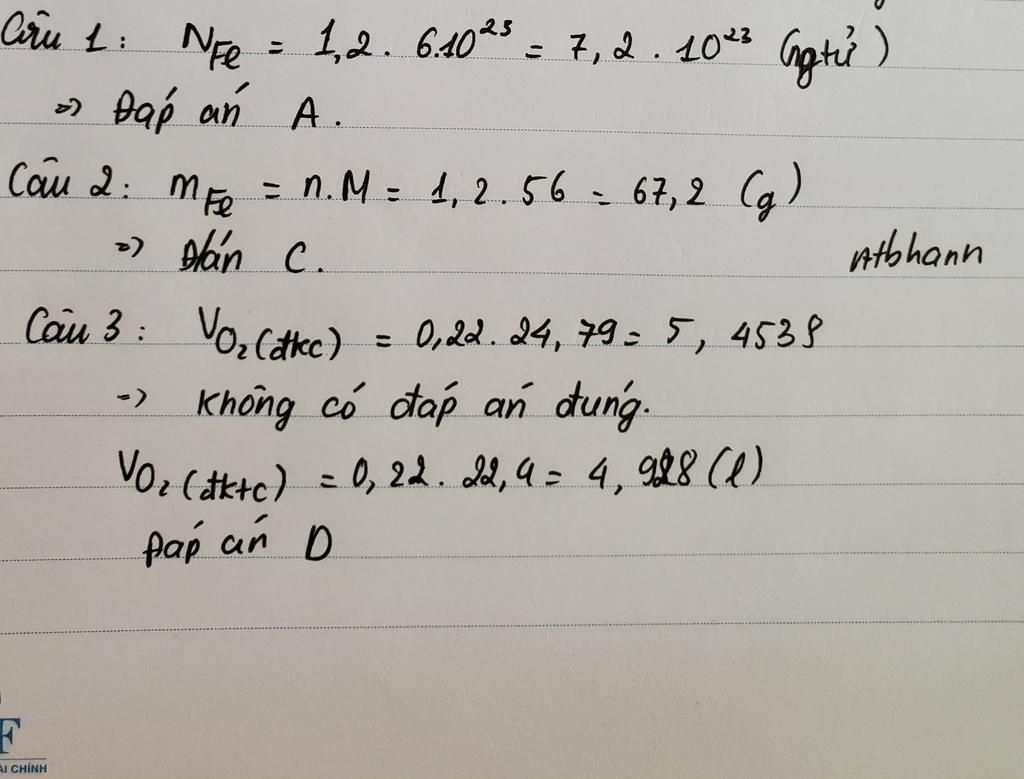 Câu 1: N_Fe = 1,2 . 6.10^23 = 7,2 . 10^23 (ngtử)
=> Đáp án A.
Câu 2: m_Fe = n.M = 1,2 . 56 = 67,2 (g)
=> Đ/án C.
Ntbhann
Câu 3: V_O₂(đkc) = 0,22. 24,79 = 5, 4538
=> Không có đáp án đúng.
V_O₂(đktc) = 0, 22. 22,4 = 4, 928 (l)
Đáp án D
F
ÀI CHÍNH